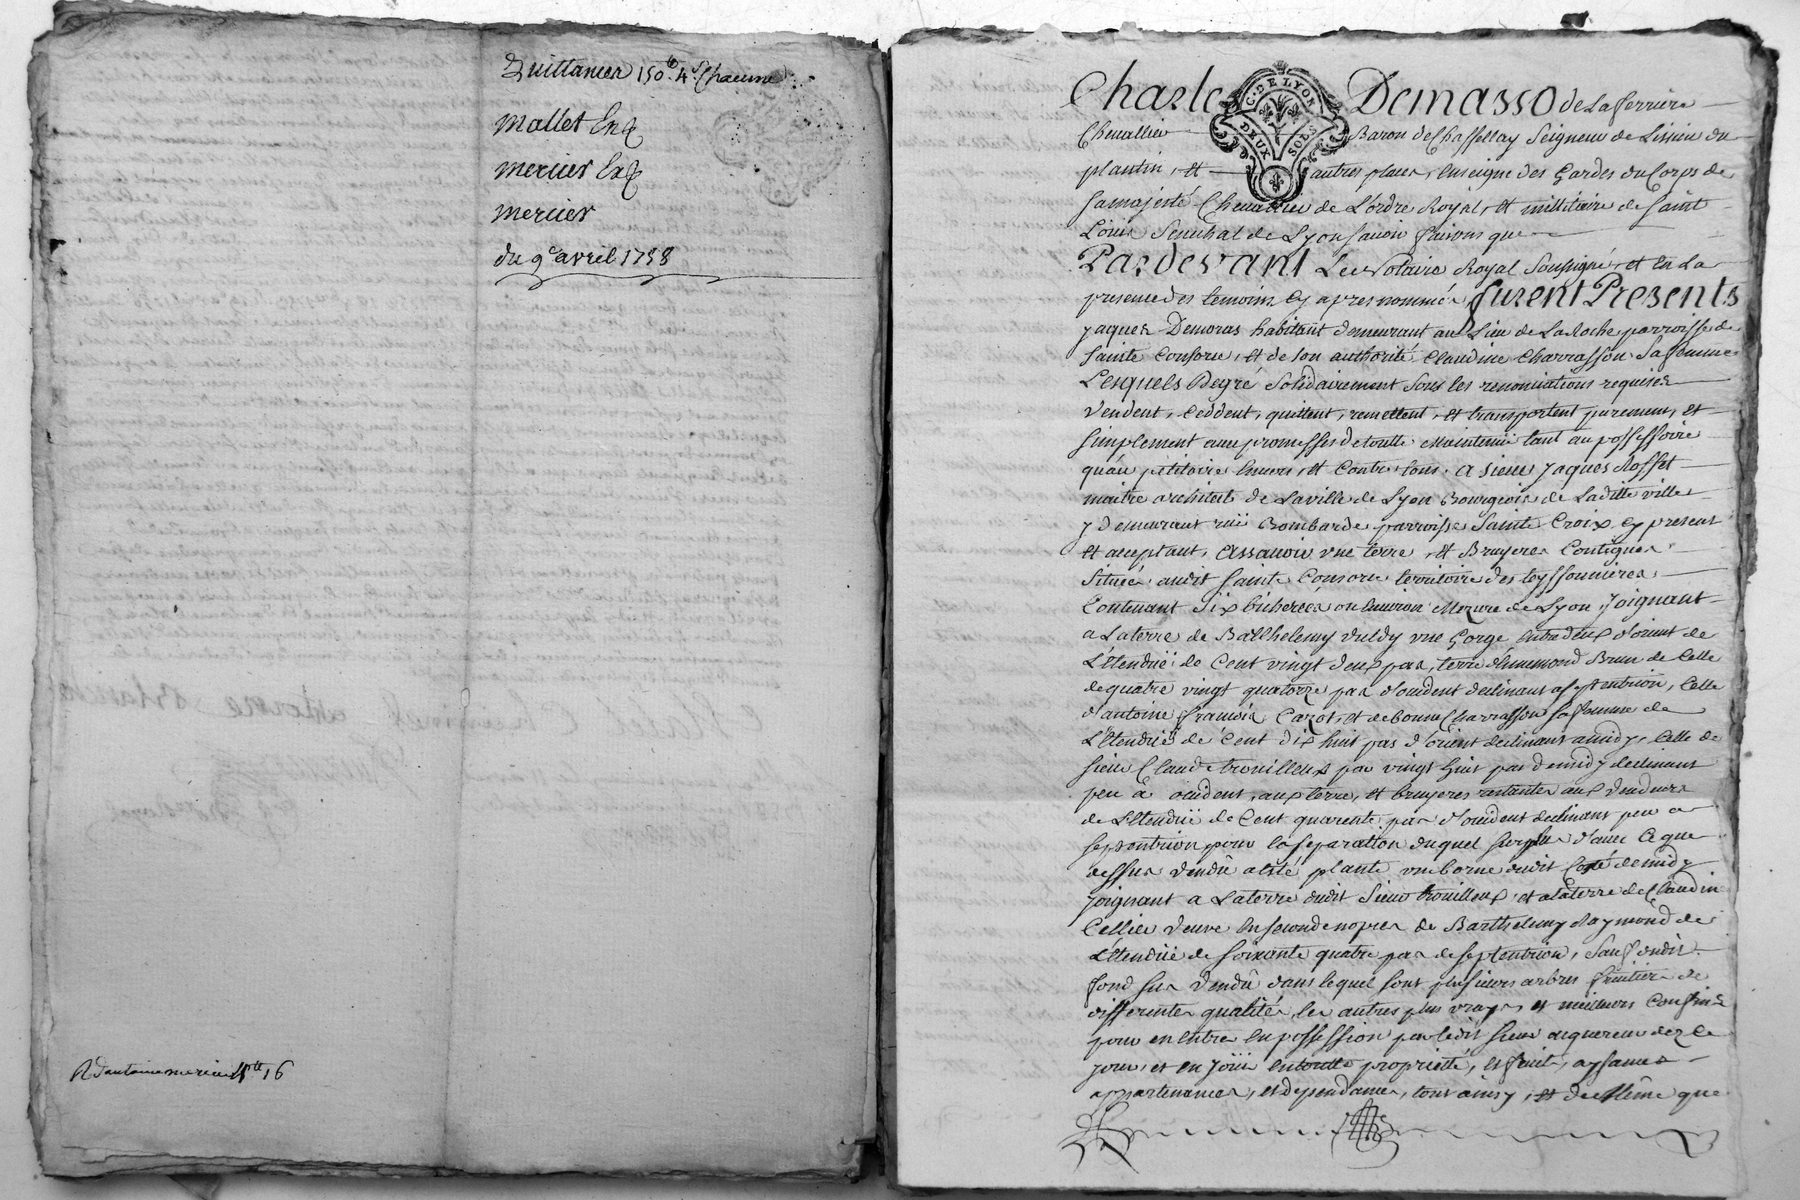 Quittances 150# 4s Chacune
Mallet Exp
mercier Exp
mercier
du 9e avril 1758
R d'antoine mercier
16
C. DE LYON
DEUX SOLS
Charles Demasso de La ferriere
Chevallier Baron de Chassellay Seigneur de Lissieu du
plantin, et autres places, enseigne des Gardes du Corps de
sa majesté Chevallier de L'ordre Royal, et millitaire de Saint
Loüis Senechal de Lyon Savoir faisons que
Pardevant Le Notaire Royal Soussigné, et En La
presence des temoins Cy apres nommés furent Presents
jaques Demoras habitant demeurant au Lieu de La Roche parroisse de
Sainte Consorce, et de Son authorité Claudine Charrasson Sa femme
Lesquels Degré Solidairement Sous les renonciations requises
Vendent, Ceddent, quittent, remettent, et transportent purement, et
Simplement avec promesses de toutte Maintenüe tant au possessoire
qu'au petitoire Envers, et Contre tous. a sieur jaques Roffet
maitre architecte de La ville de Lyon Bourgeois de Laditte ville
y demeurant rüe Bombarde parroisse Sainte Croix Cy present
et acceptant, Assavoir une terre, et Bruyeres Contigues
Situées audit Sainte Consorce territoire des teyssonnieres
Contenant Six bicherées ou Environ Mezure de Lyon Joignant
a La terre de Barthelemy une Gorge entredeux d'orient de
L'etendüe de Cent vingt deux pas, terre d'Ennemond Brun de Celle
de quatre vingt quatorze pas d'occident declinant a Septentrion, Celle
d'antoine françois Cazot, et de bonne Charrasson Sa femme de
L'etendüe de Cent dix huit pas d'orient declinant a midy, Celle de
Sieur Claude trouilleux par vingt huit pas de midy declinant
peu a occident, aux terre, et bruyeres restantes aux Vendeurs
de L'etendüe de Cent quarente pas d'occident declinant peu a
Septentrion pour la separation duquel Surplus d'avec Ce que
dessus Vendû a eté planté une borne dudit Coté de midy
joignant a La terre dudit Sieur trouilleux, et a La terre de Claudine
Cellier veuve En Secondes nopces de Barthelemy Raymond de
L'etendüe de Soixante quatre pas de Septentrion, Sauf dudit
fond Sus Vendû dans lequel Sont plusieurs arbres fruitiers de
differentes qualités, les autres plus vrays, et meilleurs Confins
pour en Entrer En possession par ledit Sieur acquereur dez Ce
jour, et en Joüir En toutte proprieté, et fruit, aysances
appartenances, et dependances, tout ainsy, et de Même que